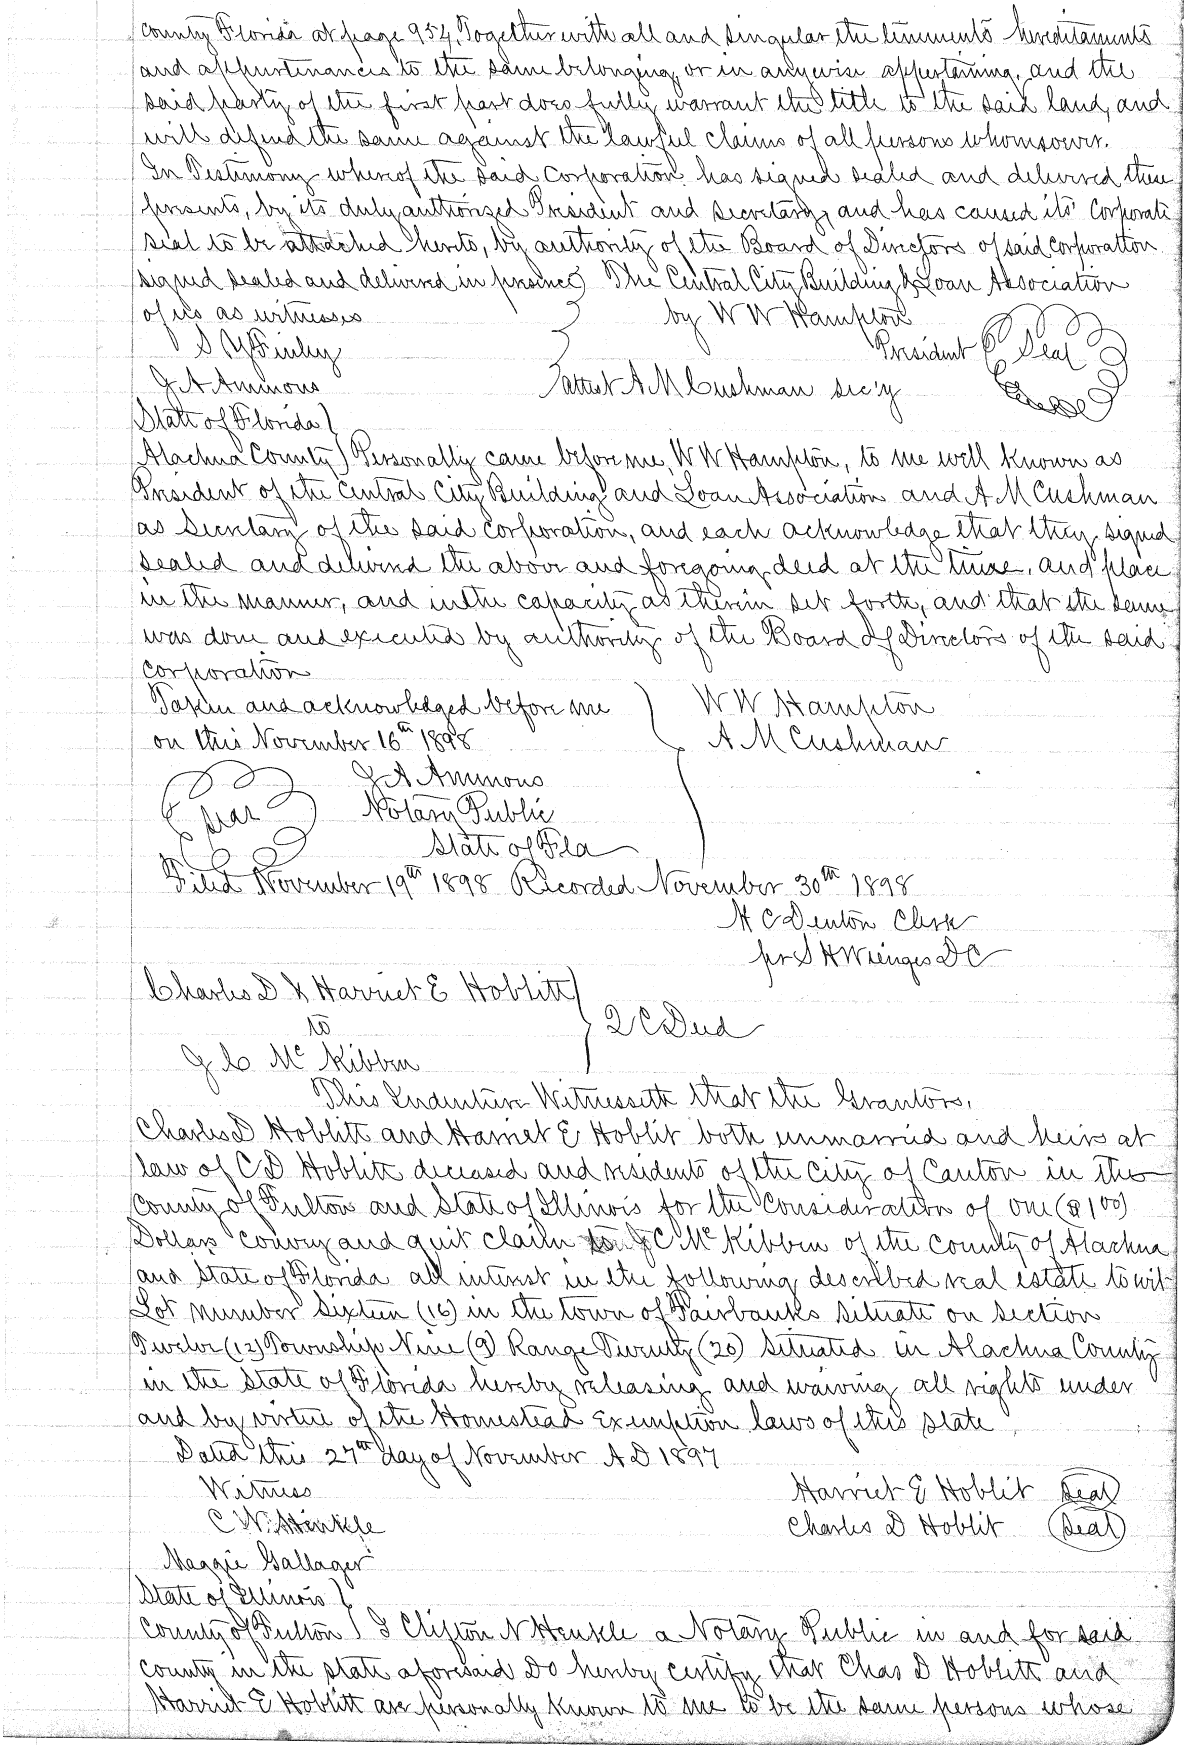 County Florida at page 954, Together with all and singular the tinements hereditaments
and appurtinances to the same belonging or in anywise appertaining, and the
said party of the first part does fully warrant the title to the said land, and
will defend the same against the lawful claims of all persons whomsoever.
In Testimony whereof the said Corporation has signed sealed and delivered these
presents, by its duly authorized President and Secretary, and has caused its Corporate
seal to be attached hereto, by authority of the Board of Directors of said corporation
signed sealed and delivered in presence } The Central City Building & Loan Association
of us as witnesses by W W Hampton
S Y Finley President Seal
J A Ammons attest A M Cushman sec'y
State of Florida }
Alachua County } Personally came before me, W W Hampton, to me well known as
President of the Central City Building and Loan Association and A M Cushman
as Secretary of the said corporation, and each acknowledge that they signed
sealed and delivered the above and foregoing deed at the time, and place
in the manner, and in the capacity as therein set forth, and that the same
was done and executed by authority of the Board of Directors of the said
corporation
Taken and acknowledged before me W W Hampton
on this November 16th 1898 A M Cushman
J A Ammons
Seal Notary Public
State of Fla
Filed November 19th 1898 Recorded November 30th 1898
H C Denton Clerk
pr S H Wienges D C
Charles D & Harriet E Hoblitt }
to } Q C Deed
J C Mc Kibben
This Indenture Witnesseth that the Grantors,
Charles D Hoblitt and Harriet E Hoblit both unmarried and heirs at
law of C D Hoblitt deceased and residents of the City of Canton in the
County of Fulton and State of Illinois for the Consideration of One ($1 00)
Dollars Convey and quit claim to J C Mc Kibben of the County of Alachua
and State of Florida all interest in the following described real estate to wit
Lot number Sixteen (16) in the town of Fairbanks situate on section
Twelve (12) Township Nine (9) Range Twenty (20) situated in Alachua County
in the State of Florida hereby releasing and waiving all rights under
and by virtue of the Homestead Exemption laws of this state
Dated this 27th day of November A D 1897
Witness Harriet E Hoblit Seal
C N Henkle Charles D Hoblit Seal
Maggie Gallager
State of Illinois }
County of Fulton } I Clifton N Henkle a Notary Public in and for said
County in the state aforesaid Do hereby certify that Chas D Hoblitt and
Harriet E Hoblitt are personally known to me to be the same persons whose